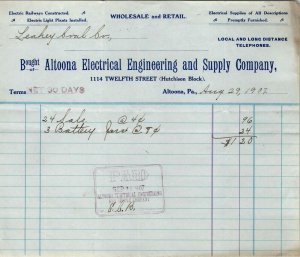 Electric Railways Constructed. WHOLESALE AND RETAIL. Electrical Supplies of All Descriptions
Electric Light Plants Installed. Promptly Furnished.
Leahey Coal Co., LOCAL AND LONG DISTANCE
TELEPHONES.
Bought of Altoona Electrical Engineering and Supply Company,
1114 TWELFTH STREET (Hutchison Block).
Terms NET 30 DAYS Altoona, Pa., Aug 29, 1907
24 Sals @ 4¢ 96
3 Battery Jars @ 8¢ 24
$1.20
PAID
ALTOONA ELECTRICAL ENGINEERING